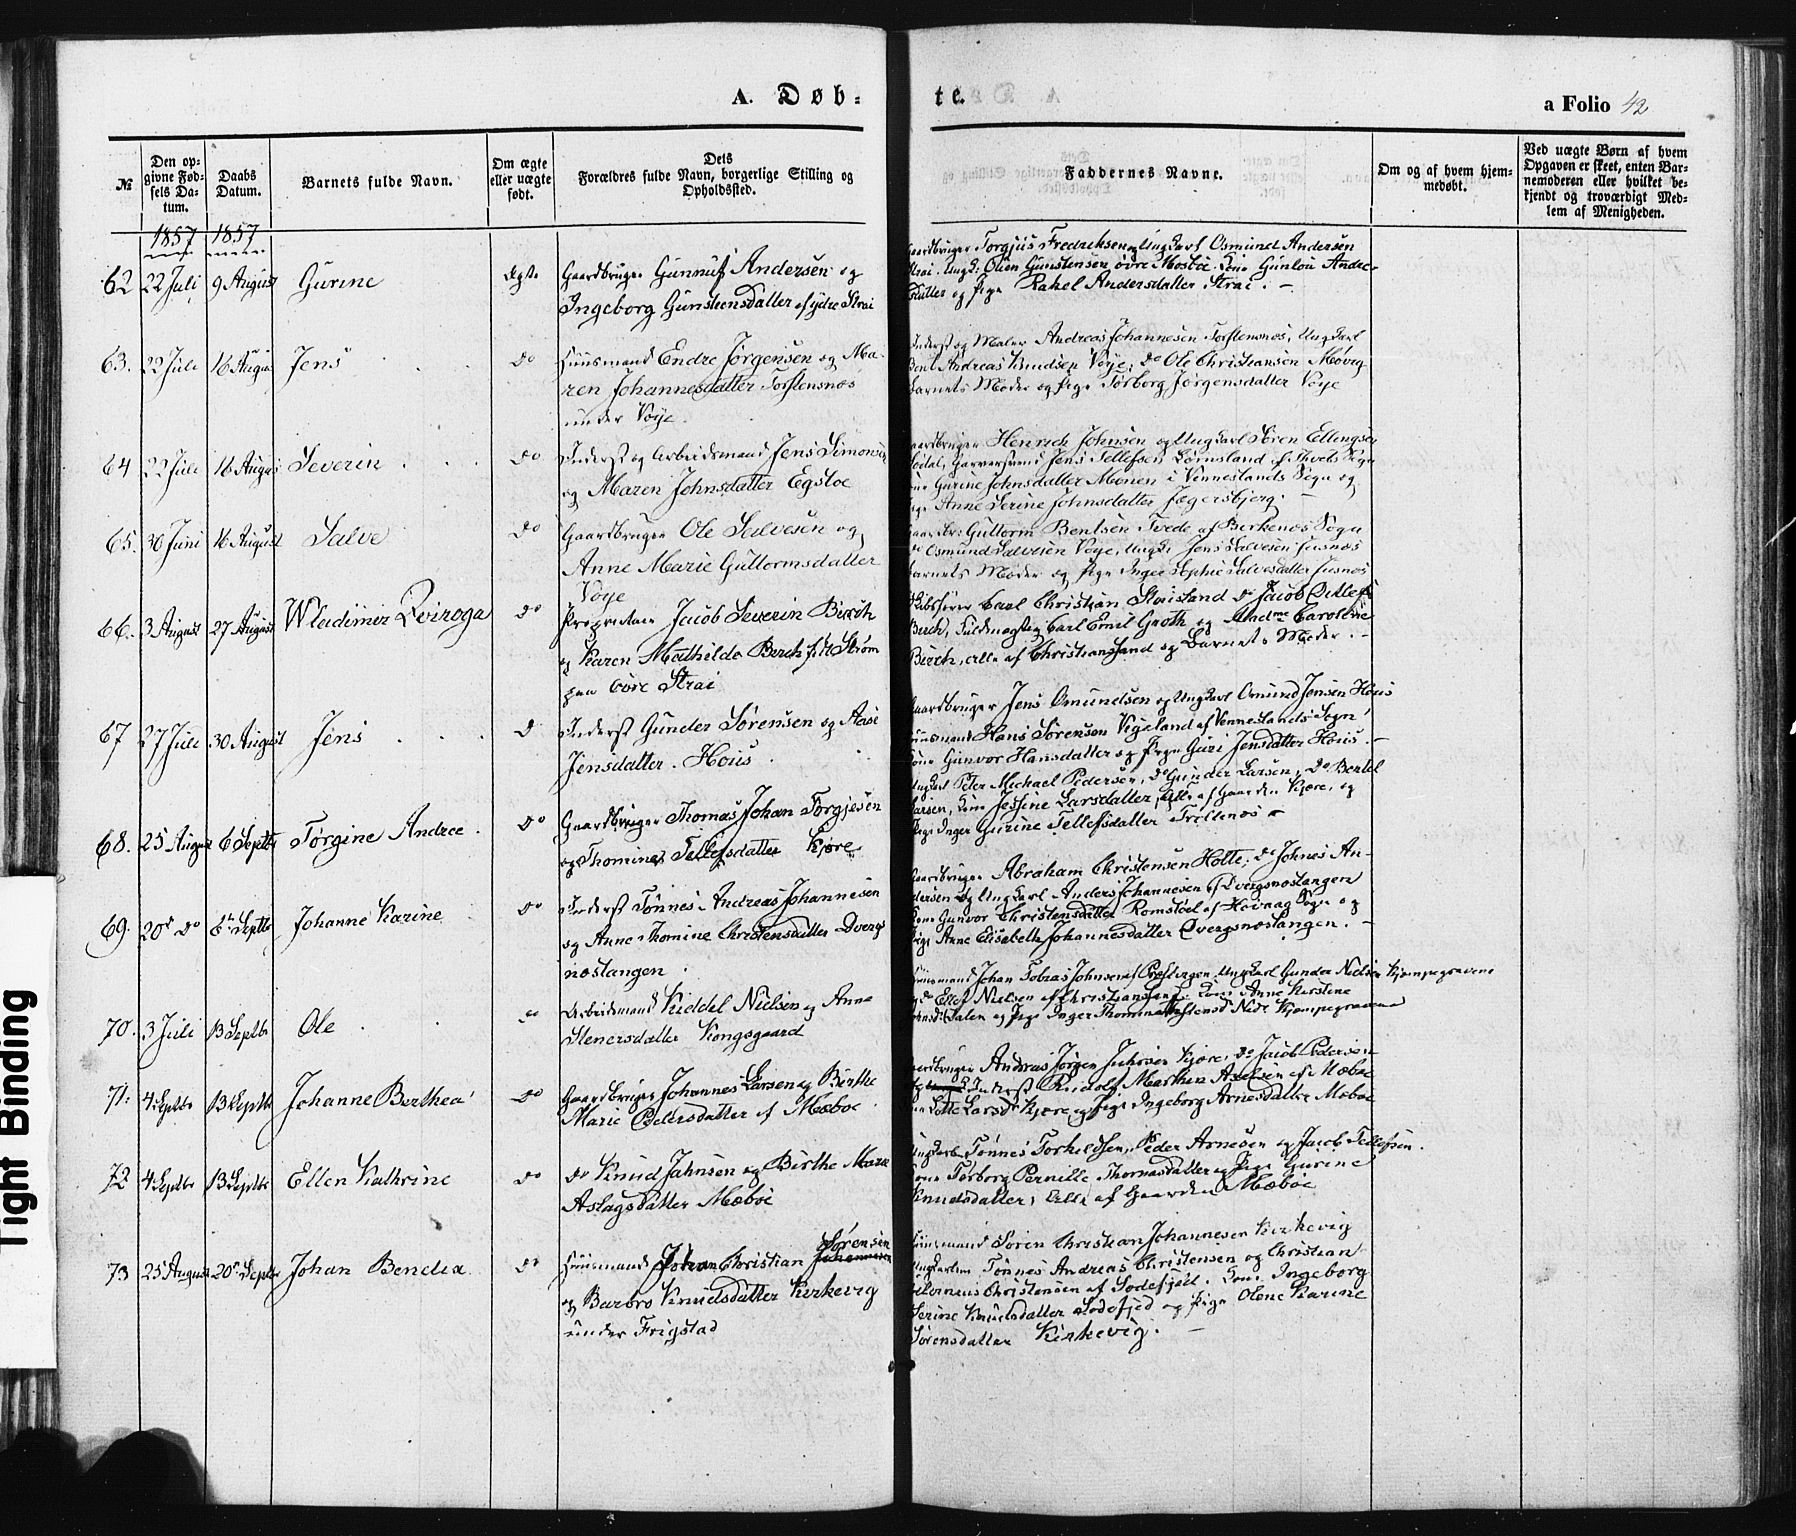 A. Døb=
te.
a Folio 42
№
Den op=
givne Fød=
sels Da=
tum.
Daabs
Datum.
Barnets fulde Navn.
Om ægte
eller uægte
født.
Dets
Forældres fulde Navn, borgerlige Stilling og
Opholdssted.
Faddernes Navne.
Om og af hvem hjem=
medøbt.
Ved uægte Børn af hvem
Opgaven er skeet, enten Bar=
nemoderen eller hvilket be=
kjendt og troværdigt Med=
lem af Menigheden.
1857 1857
62 22 Juli 9 August Gurine Ægte Gaardbruger Gunnuf Andersen og
Ingeborg Gunstensdatter af ydre Strai
Torgjus Fredriksen og Ungkarl Osmund Andersen
Strai. Ungk: Olien Gunstensen øvre Mosbøe. Kone Gunlou Andre-
datter og Pige Rakel Andersdatter Strai. -
63. 22 Juli 16 August Jens Do Huusmand Endre Jørgensen og Ma-
ren Johannesdatter Torstensnøs
under Vøye.
Inderst og Maler Andreas Johannesen Torstensnøs, Ungkarl
Bent Andreas Knudsen Vøye, Do Ole Christiansen Møvig
Barnets Moder og Pige Torborg Jørgensdatter Vøye
64 22 Juli 16 August Severin Do Inderst og Arbeidsmand Jens Simonsen
og Maren Johnsdatter Egsbøe
Henrich Johnsen og Ungkarl Søren Ellingsen
Garversvend Jens Tellefsen
Gurine Johnsdatter Monen i Venneslands Sogn og
Anne Serine Johnsdatter Jægersbjerg. -
65. 30 Juni 16 August Salve Do Gaardbruger Ole Salvesen og
Anne Marie Guttormsdatter
Vøye
Guttorm Bentsen Tvede af Birkenøs Sogn
Do Osmund Salvesen Vøye, Ungk. Jens Salvesen
Barnets Moder og Pige Inger Sophie Salvesdatter
66. 3 August 27 August Wladimir Qviroga Do Proprietair Jacob Severin Birch
og Karen Mathilde Birch født Strøm
paa øvre Strai
Skibsfører Carl Christian Staisland Do Jacob Ditlef
Birch, Fuldmægtig Carl Emil Groth og Madme Caroline
Birch, alle af Christianssand og Barnets Moder. -
67 27 Juli 30 August Jens Do Inderst Gunder Sørensen og Aase
Jensdatter. Høiis.
Gaardbruger Jens Omundsen og Ungkarl Omund Jensen Høiis
Huusmand Hans Sørensen Vigeland af Venneslands Sogn,
Kone Gunvor Hansdatter og Pige Guri Jensdatter Høiis. -
68. 25 August 6 Septbr Tørgine Andrea Do Gaardbruger Thomas Johan Torgjesen
og Thomine Tellefsdatter Kjøre
Ungkarl Peter Michael Pedersen, Do Gunder Larsen, Do Bertel
Larsen, Kone Jessine Larsdatter, alle af Gaarden Kjøre, og
Pige Inger Gurine Tellefsdatter
69. 20de Do 6te Septbr Johanne Karine Do Inderst Tønnes Andreas Johannesen
og Anne Thomine Christensdatter Dvergs
nøstangen
Gaardbruger Abraham Christensen Holte, Do Johnes An-
dersen og Ungkarl Anders Johannesen af Dvergsnøstangen
Kone Gunvor Christensdatter Romstøel af Høivaag Sogn og
Pige Anne Elisabeth Johannesdatter Dvergsnøstangen. -
70. 3 Juli 13 Septbr Ole Arbeidsmand Kiddel Nielsen og Anne
Stenersdatter Kongsgaard
Huusmand Johan Tobias Johnsen af Ungkarl Gunder Nielsen Kjempegravene
Do Ellef Nielsen af Christianssand, Kone Anne Kirstine
og Pige Inger Kjempegravene
71. 4 Septbr 13 Septbr Johanne Berthea Do Gaardbruger Johannes Larsen og Birthe
Marie Pedersdatter af Mæbøe.
Gaardbruger Andreas Jørgen Kjøre, Do Jacob Pedersen
Inderst Rudolf Marthin Axelsen af Mæbøe
Lotte Larsd: Kjøre, og Pige Ingeborg Arnesdatter Mæbøe
72 4 Septbr 13 Septbr Ellen Kathrine Do Do Knud Jahnsen og Birthe Marie
Aslagsdatter Mæbøe
Ungkarl Tønnes Torkeldsen, Peder Arnesen og Jacob Tellefsen.
Kone Torborg Pernille Thomasdatter og Pige Gurine
Knudsdatter, alle af Gaarden Mæbøe
73 25 August 20de Septbr Johan Bendix Do Huusmand Johan Christian Sørensen
Johannesen
og Barbro Knudsdatter Kirkevig
under Frigstad
Huusmand Søren Christian Johannesen Kirkevig
Ungkarlene Tønnes Andreas Christensen og Christian
Christensen af Sodefjed. Kone Ingeborg
Serine Knudsdatter Sodefjed og Pige Olene Karine
Sørensdatter Kirkevig. -
Tight Binding